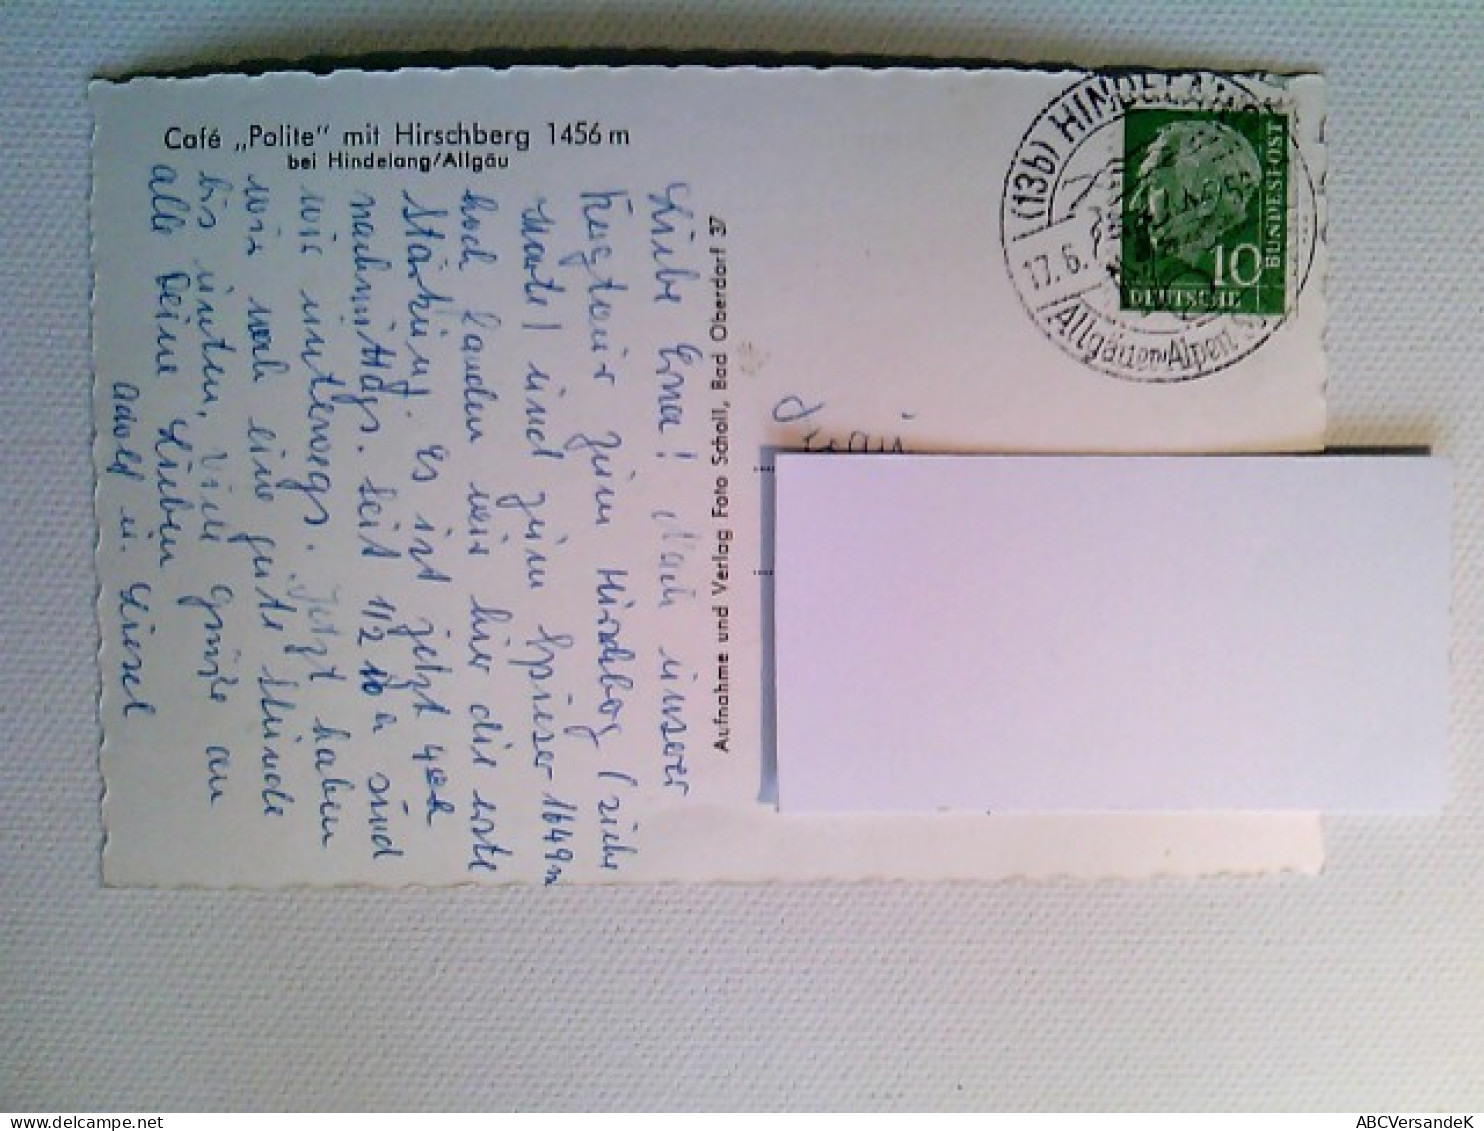 Café „Polite" mit Hirschberg 1456 m
bei Hindelang/Allgäu
Liebe Erna! Nach unserer
zum Hirschberg (siehe
Karte) und zum Spieser 1649m
hoch landen wir hier die erste
Stärkung. Es ist jetzt 4
nachmittags. Seit 1/2 10 h sind
wir unterwegs. Jetzt haben
wir noch eine gute Stunde
bis unten. Viele Grüße an
alle Deine Lieben
Adolf u. Liesel
Aufnahme und Verlag Foto Scholl, Bad Oberdorf 37
(13b) HINDELANG
17.6.
Allgäuer Alpen
10
DEUTSCHE
BUNDESPOST
ABCVersandeK